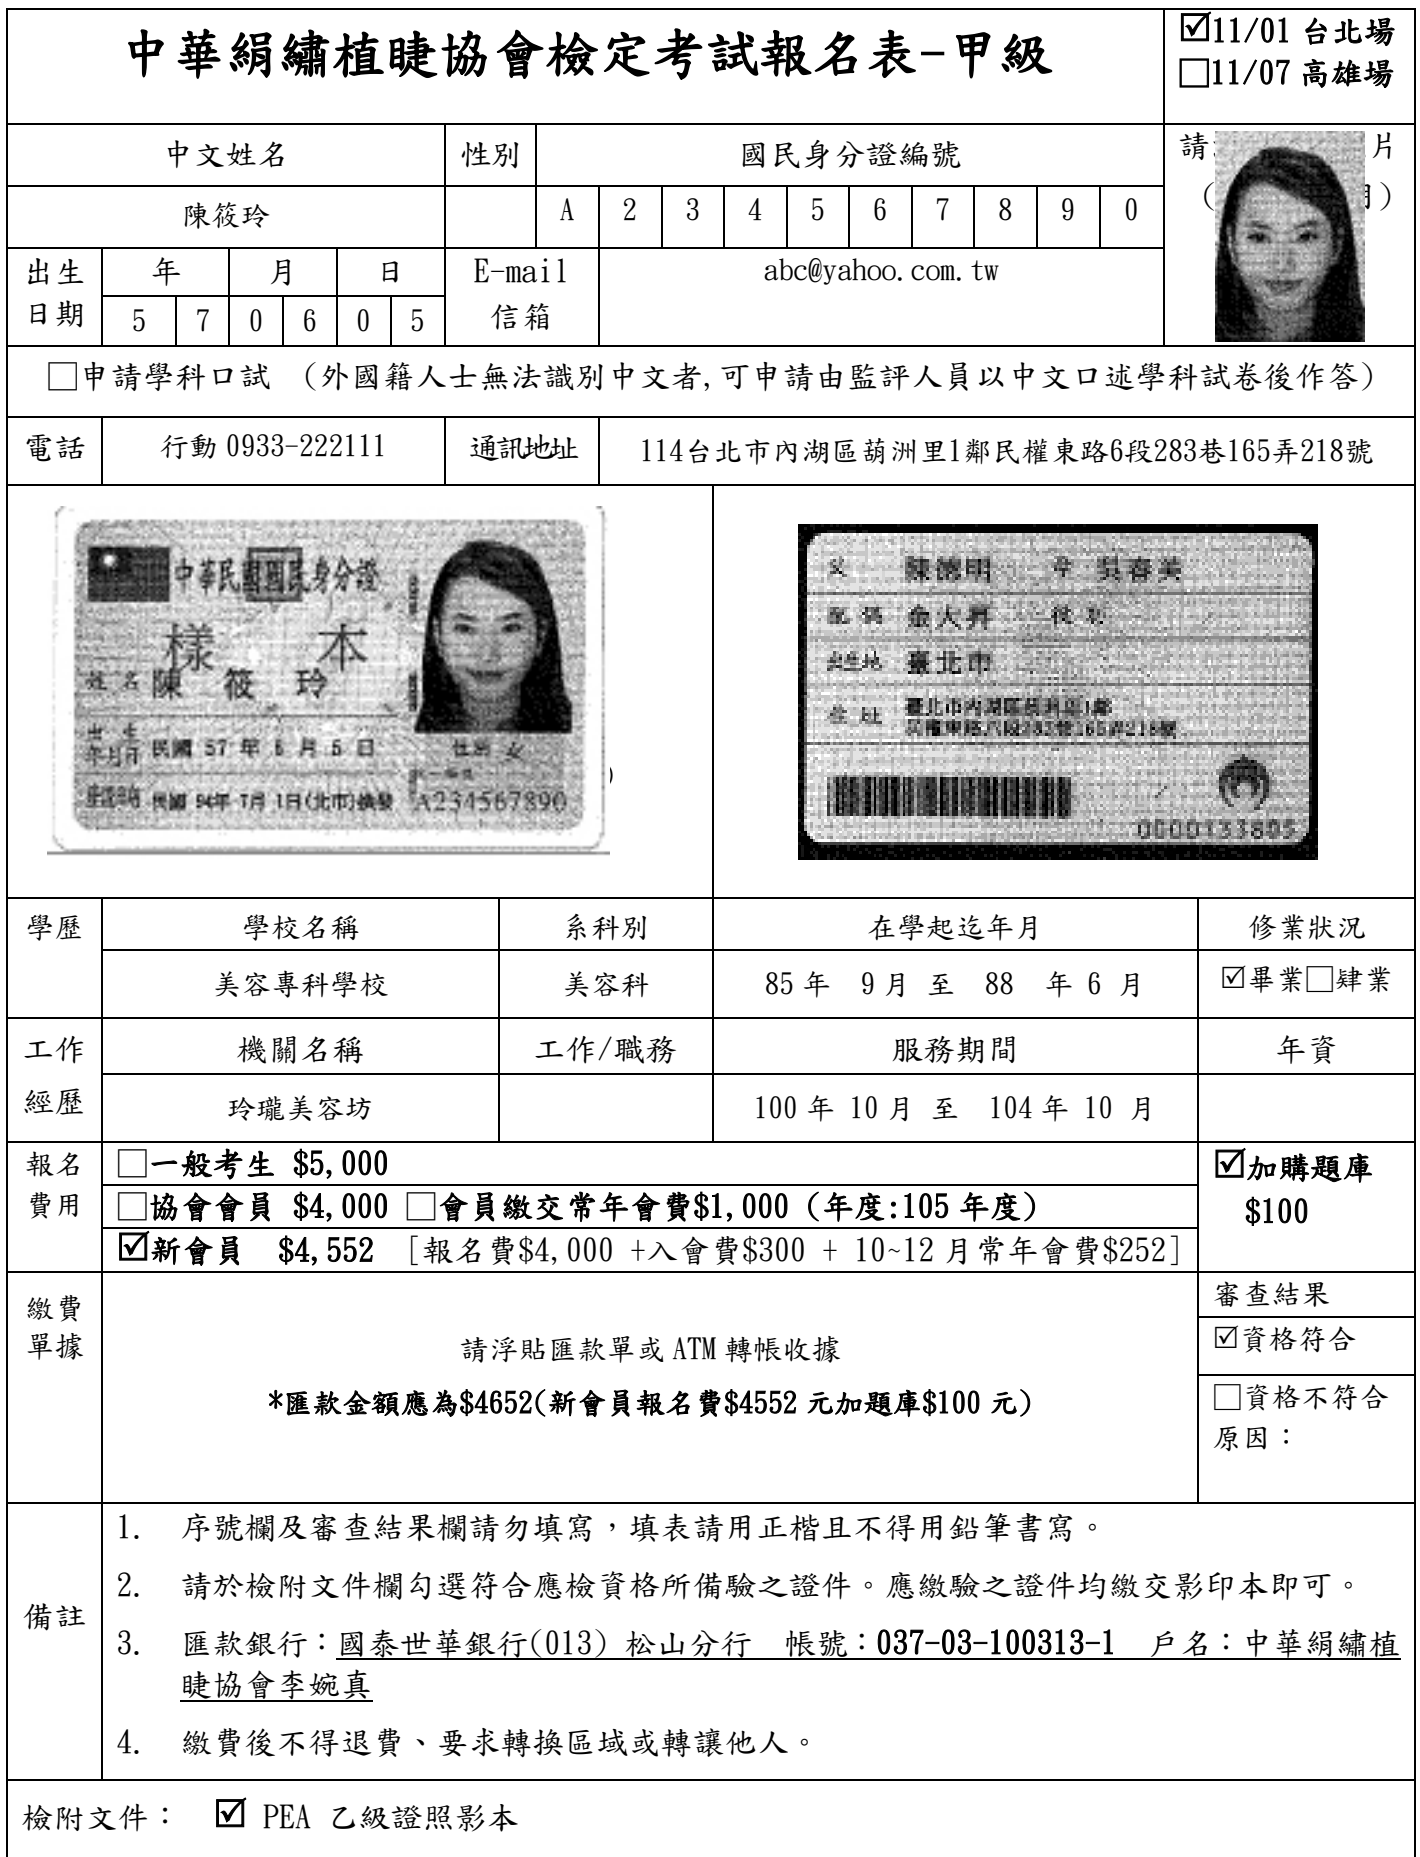 中華絹繡植睫協會檢定考試報名表-甲級
☑11/01 台北場
□11/07 高雄場
中文姓名
性別
國民身分證編號
請
片
(
)
陳筱玲
A 2 3 4 5 6 7 8 9 0
出生
日期
年 月 日
5 7 0 6 0 5
E-mail
信箱
abc@yahoo.com.tw
□申請學科口試 (外國籍人士無法識別中文者,可申請由監評人員以中文口述學科試卷後作答)
電話
行動 0933-222111
通訊地址
114台北市內湖區葫洲里1鄰民權東路6段283巷165弄218號
中華民國國民身分證
樣 本
姓名 陳 筱 玲
出 生
年月日 民國 57 年 6 月 5 日
性別 女
民國 94年 7月 1日(北市)換發
A234567890
)
父 陳德明 母 吳春美
配偶 金大昇 役別
出生地 臺北市
住址 臺北市內湖區葫洲里1鄰
民權東路六段283巷165弄218號
0000133805
學歷
學校名稱
系科別
在學起迄年月
修業狀況
美容專科學校
美容科
85 年 9 月 至 88 年 6 月
☑畢業□肄業
工作
經歷
機關名稱
工作/職務
服務期間
年資
玲瓏美容坊
100 年 10 月 至 104 年 10 月
報名
費用
□一般考生 $5,000
□協會會員 $4,000 □會員繳交常年會費$1,000 (年度:105 年度)
☑新會員 $4,552 [報名費$4,000 +入會費$300 + 10~12 月常年會費$252]
☑加購題庫
$100
繳費
單據
請浮貼匯款單或 ATM 轉帳收據
*匯款金額應為$4652(新會員報名費$4552 元加題庫$100 元)
審查結果
☑資格符合
□資格不符合
原因：
備註
1. 序號欄及審查結果欄請勿填寫，填表請用正楷且不得用鉛筆書寫。
2. 請於檢附文件欄勾選符合應檢資格所備驗之證件。應繳驗之證件均繳交影印本即可。
3. 匯款銀行：國泰世華銀行(013) 松山分行 帳號：037-03-100313-1 戶名：中華絹繡植
睫協會李婉真
4. 繳費後不得退費、要求轉換區域或轉讓他人。
檢附文件： ☑ PEA 乙級證照影本